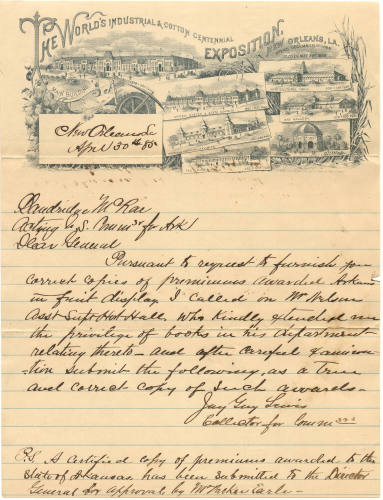 THE WORLD'S INDUSTRIAL & COTTON CENTENNIAL
EXPOSITION.
NEW ORLEANS, LA.
MAIN BUILDING
New Orleans La
April 30th 85
Dandridge McRae
Acting U.S. Commr for Ark
Dear General
Pursuant to request to furnish you
correct copies of premiums awarded Arkansas
in fruit display I called on Mr Wilson
Asst Supt Hort Hall, who kindly extended me
the privilege of books in his department
relating thereto - and after careful examina-
tion submit the following, as a true
and correct copy of such awards -
Jay Guy Lewis
Collector for Comm
P.S. A certified copy of premiums awarded to the
State of Arkansas has been submitted to the Director
General for approval by Mr Parker Earle -